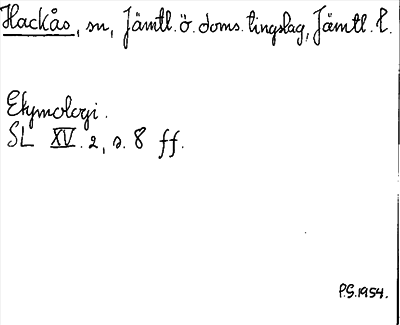 Hackås, sn, Jämtl. ö. doms. tingslag, Jämtl. l.
Etymologi.
SL XV. 2, s. 8 ff.
P.G. 1954.